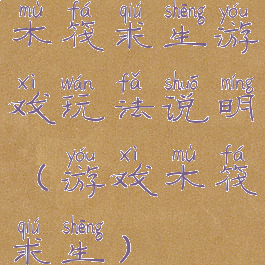 mù fá qiú shēng yóu
木筏求生游
xì wán fǎ shuō míng
戏玩法说明
yóu xì mù fá
（游戏木筏
qiú shēng
求生）